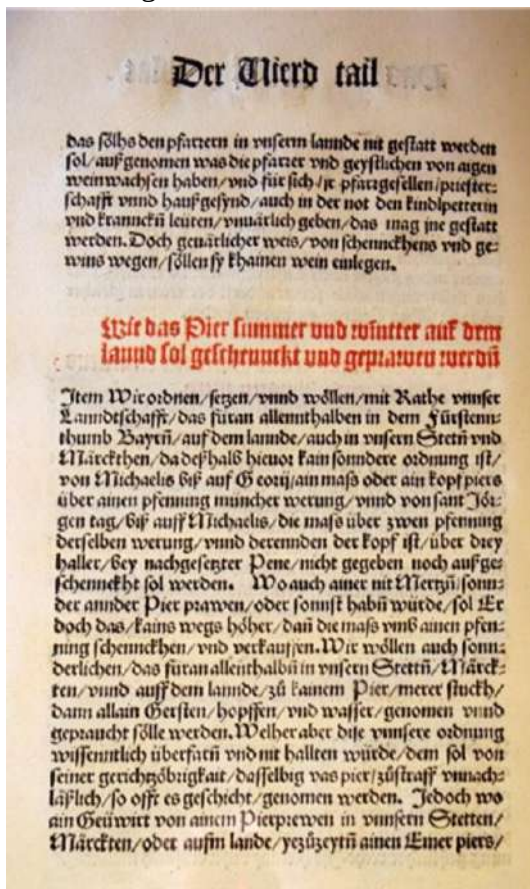 Der Vierd tail
das sölhs den pfarrern in vnserm lannde nit gestatt werden
sol/außgenomen was die pfarrer vnd geystlichen von aigen
weinwachsen haben/vnd für sich/jr pfarrgesellen/priester-
schafft vnnd haußgesynd/auch in der not den kindlpetterin
vnd kranncken leüten/vnuärlich geben/das mag jne gestatt
werden. Doch geuärlicher weis/von schennckhens vnd ge-
wins wegen/söllen sy khainen wein einlegen.
Wie das Pier summer vnd wintter auf dem
lannd sol geschennckt vnd geprawen werdn̄
Item Wir ordnen/setzen/vnnd wöllen/mit Rathe vnnser
Lanndtschafft/das füran allennthalben in dem Fürstenn-
thumb Bayrn̄/auf dem lannde/auch in vnsern Stetn̄ vnd
Märckthen/da deßhalb hieuor kain sonndere ordnung ist/
von Michaelis biß auf Georij/ain mass oder ain kopf piers
über ainen pfenning müncher werung/vnnd von sant Jör-
gen tag/biß auff Michaelis/die mass über zwen pfenning
derselben werung/vnnd derennden der kopf ist/über drey
haller/bey nachgesetzter Pene/nicht gegeben noch außge-
schennckht sol werden. Wo auch ainer nit Mertzn̄/sonn-
der annder Pier prawen/oder sonnst habn̄ würde/sol Er
doch das/kains wegs höher/dann̄ die mass vmb ainen pfen-
ning schennckhen/vnd verkauffen. Wir wöllen auch sonn-
derlichen/das füran allenthalbn̄ in vnsern Stettn̄/Märck-
ten/vnnd auff dem lannde/zů kainem Pier/merer stuckh/
dann allain Gersten/hopffen/vnd wasser/genomen vnnd
gepraucht sölle werden. Welher aber dise vnnsere ordnung
wissenntlich überfarn̄ vnd nit hallten würde/dem sol von
seiner gerichtzöbrigkait/dasselbig vas pier/zůstraff vnnach-
läßlich/so offt es geschicht/genomen werden. Jedoch wo
ain Geüwirt von ainem Pierprewen in vnnsern Stetten/
Märckten/oder aufm lande/yezůzeytn̄ ainen Emer piers/